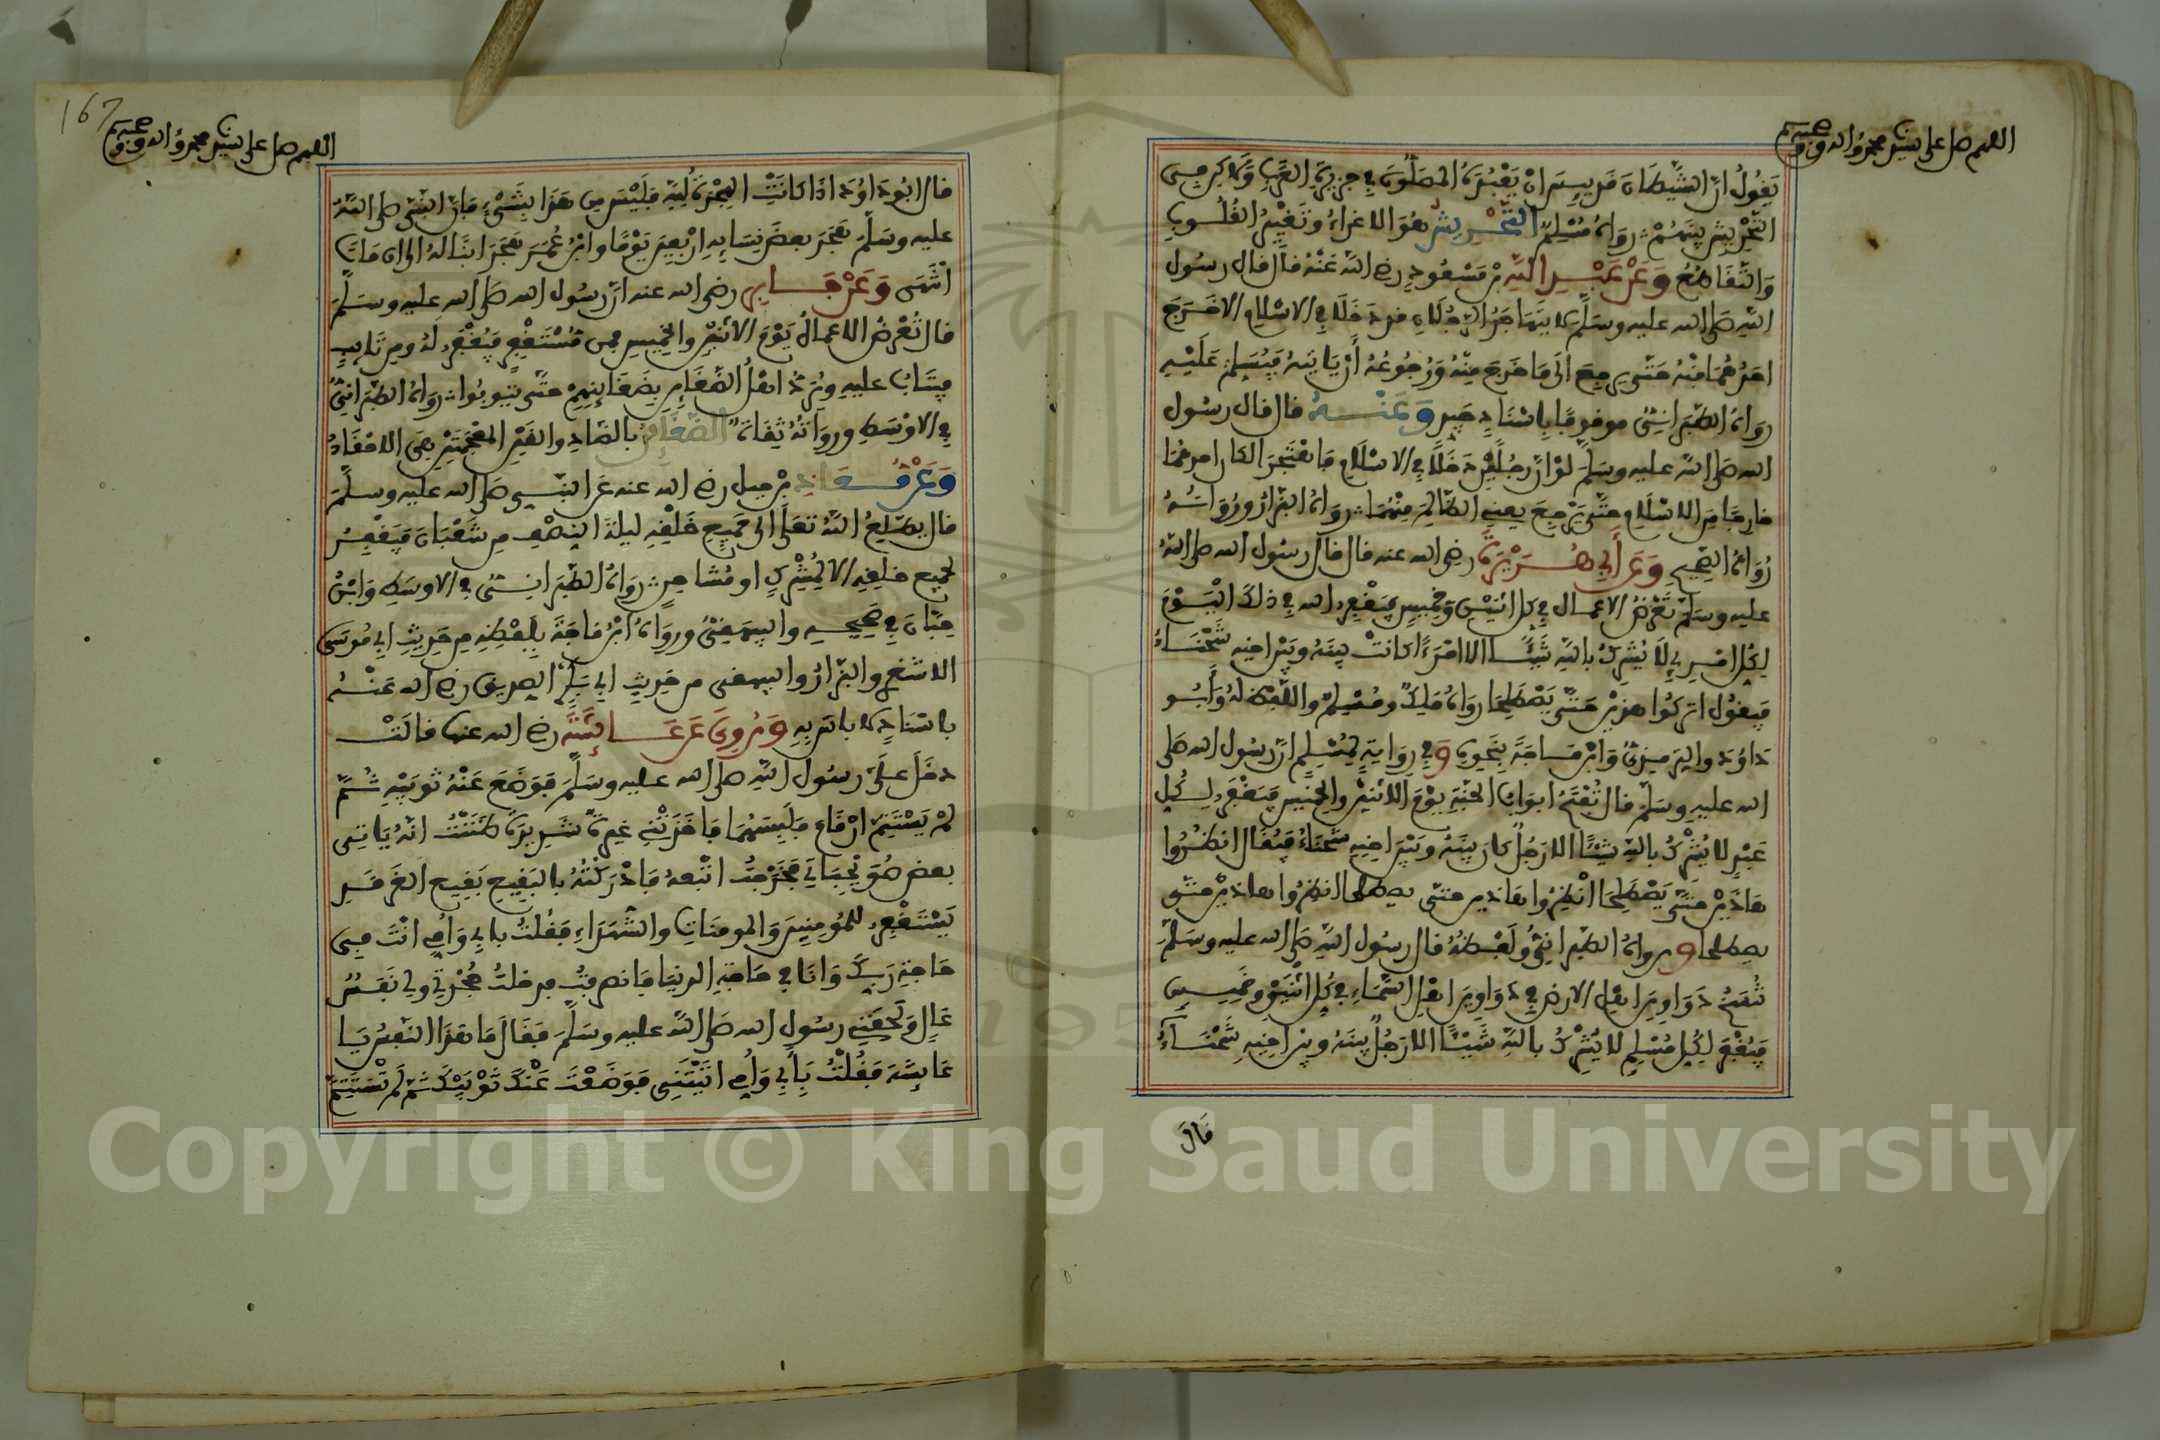 اللهم صل على سيدنا محمد واله وصحبه
يقول ان الشيطان قد يئس ان يعبده المصلون في جزيرة العرب ولاكن في
التحريش بينهم رواه مسلم التحريش هو الاغراء وتغيير القلوب
والتقاطع وعن عبد الله بن مسعود رضي الله عنه قال قال رسول
الله صلى الله عليه وسلم لا يتهاجر الرجلان قد دخلا في الاسلام الا خرج
احدهما منه حتى يرجع الى ما خرج منه ورجوعه ان ياتيه فيسلم عليه
رواه الطبراني موقوفا باسناد جيد وعنه قال قال رسول
الله صلى الله عليه وسلم لو ان رجلين دخلا في الاسلام فاهتجرا لكان احدهما
خارجا من الاسلام حتى يرجع يعني الظالم منهما رواه البزار ورواته
رواة الصحيح وعن أبي هريرة رضي الله عنه قال قال رسول الله صلى الله
عليه وسلم تعرض الاعمال في كل اثنين وخميس فيغفر الله في ذلك اليوم
لكل امرئ لا يشرك بالله شيئا الا امرءا كانت بينه وبين اخيه شحناء
فيقول اتركوا هذين حتى يصطلحا رواه مالك ومسلم واللفظ له وأبو
داود والترمذي وابن ماجة بنحوه وفي رواية لمسلم ان رسول الله صلى
الله عليه وسلم قال تفتح ابواب الجنة يوم الاثنين والخميس فيغفر لكل
عبد لا يشرك بالله شيئا الا رجل كان بينه وبين اخيه شحناء فيقال انظروا
هاذين حتى يصطلحا انظروا هاذين حتى يصطلحا انظروا هاذين حتى
يصطلحا ورواه الطبراني ولفظه قال رسول الله صلى الله عليه وسلم
تفتح دواوين اهل الارض في دواوين اهل السماء في كل اثنين وخميس
فيغفر لكل مسلم لا يشرك بالله شيئا الا رجل بينه وبين اخيه شحناء
قال
167
اللهم صل على سيدنا محمد واله وصحبه
قال ابو داود اذا كانت الهجرة لله فليس من هذا بشيء فان النبي صلى الله
عليه وسلم هجر بعض نسايه اربعين يوما وابن عمر هجر ابنا له الى ان مات
انتهى وعن جابر رضي الله عنه ان رسول الله صلى الله عليه وسلم
قال تعرض الاعمال يوم الاثنين والخميس فمن مستغفر فيغفر له ومن تايب
فيتاب عليه وترد اهل الضغاين بضغاينهم حتى يتوبوا رواه الطبراني
في الاوسط ورواته ثقات الضغاين بالضاد والغين المعجمتين هي الاحقاد
وعن معاذ بن جبل رضي الله عنه عن النبي صلى الله عليه وسلم
قال يطلع الله تعلى الى جميع خلقه ليلة النصف من شعبان فيغفر
لجميع خلقه الا لمشرك او مشاحن رواه الطبراني في الاوسط وابن
حبان في صحيحه والبيهقي ورواه ابن ماجة بلفظه من حديث ابي موسى
الاشعري والبزار والبيهقي من حديث ابي بكر الصديق رضي الله عنه
باسناد لا باس به وروي عن عائشة رضي الله عنها قالت
دخل علي رسول الله صلى الله عليه وسلم فوضع عنه ثوبيه ثم
لم يستتم ان قام فلبسهما فاخذتني غيرة شديدة ظننت انه ياتي
بعض صويحباتي فخرجت اتبعه فادركته بالبقيع بقيع الغرقد
يستغفر للمومنين والمومنات والشهداء فقلت بابي وامي انت في
حاجة ربك وانا في حاجة الدنيا فانصرفت فدخلت حجرتي ولي نفس
عال ولحقني رسول الله صلى الله عليه وسلم فقال ما هذا النفس يا
عايشة فقلت بأبي وامي اتيتني فوضعت عنك ثوبيك ثم لم تستتم
Copyright © King Saud University